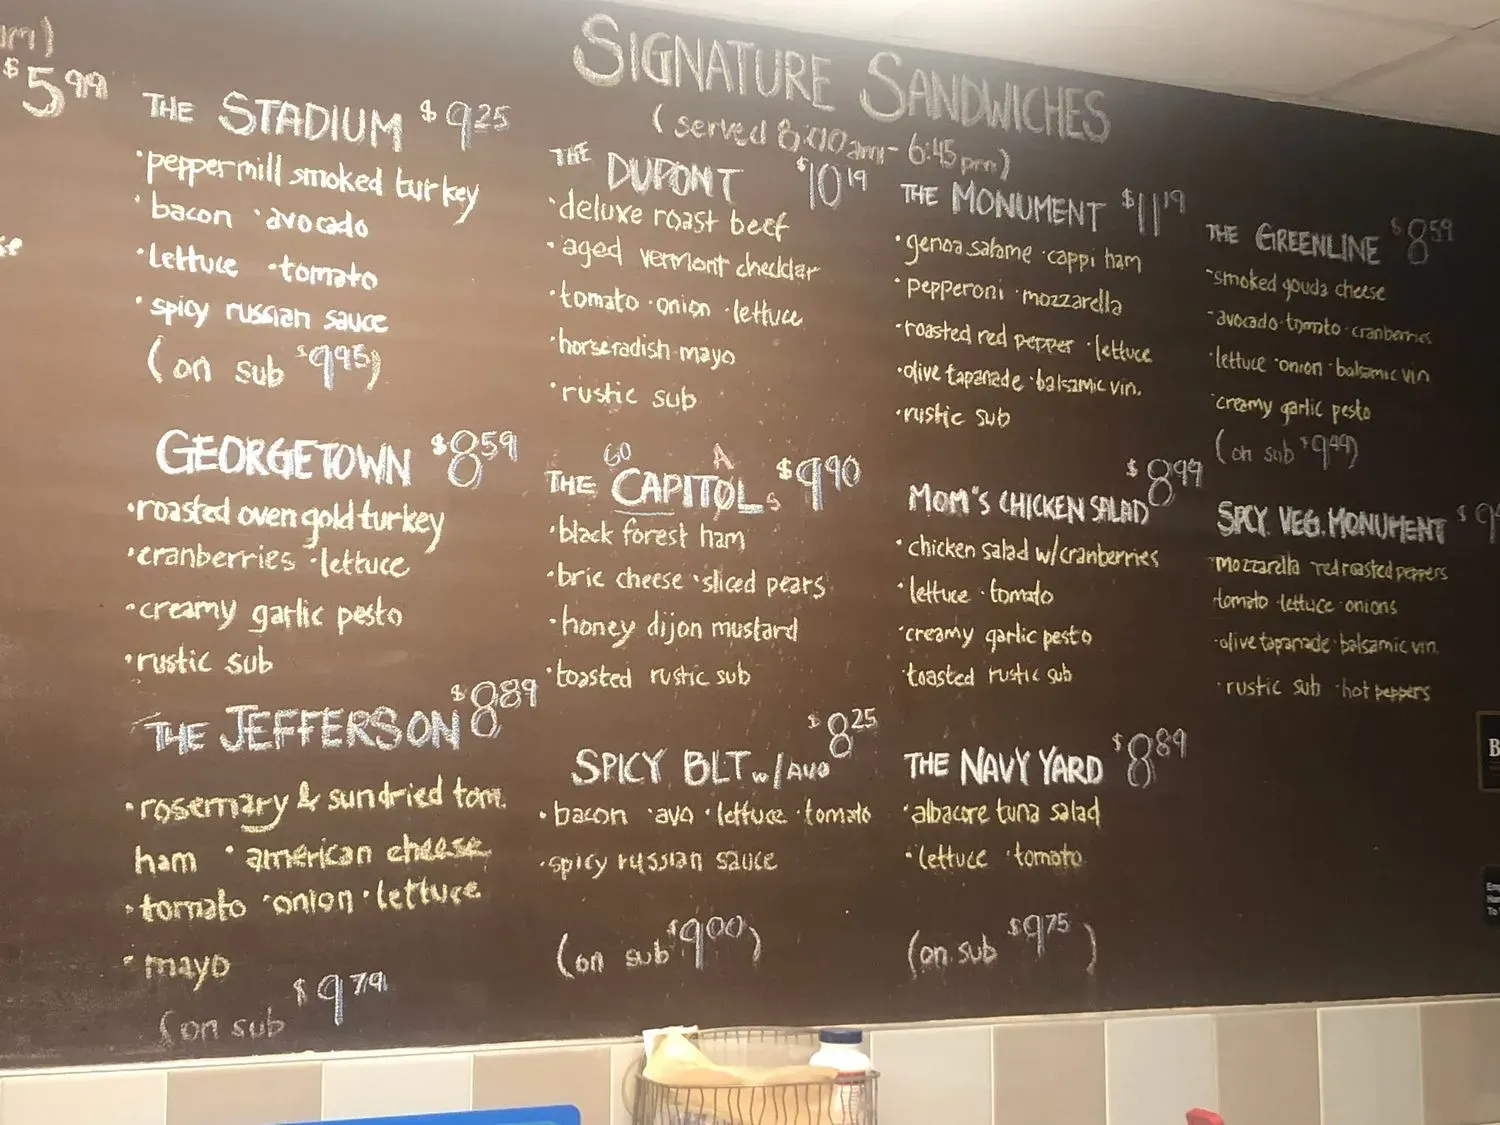 $5.99
SIGNATURE SANDWICHES
(served 8:00am - 6:45pm)
THE STADIUM $9.25
·peppermill smoked turkey
·bacon ·avocado
·lettuce ·tomato
·spicy russian sauce
(on sub $9.95)
GEORGETOWN $8.59
·roasted oven gold turkey
·cranberries ·lettuce
·creamy garlic pesto
·rustic sub
THE JEFFERSON $8.89
·rosemary & sundried tom.
ham ·american cheese
·tomato ·onion ·lettuce
·mayo
(on sub $9.79
THE DUPONT $10.19
·deluxe roast beef
·aged vermont checklar
·tomato ·onion ·lettuce
·horseradish mayo
·rustic sub
GO A
THE CAPITOLS $9.90
·black forest ham
·brie cheese ·sliced pears
·honey dijon mustard
·toasted rustic sub
SPICY BLT w/AVO $8.25
·bacon ·avo ·lettuce ·tomato
·spicy russian sauce
(on sub $9.00)
THE MONUMENT $11.19
·genoa salame ·cappi ham
·pepperoni ·mozzarella
·roasted red pepper ·lettuce
·olive tapanade ·balsamic vin.
·rustic sub
MOM'S CHICKEN SALAD $8.99
·chicken salad w/cranberries
·lettuce ·tomato
·creamy garlic pesto
·toasted rustic sub
THE NAVY YARD $8.89
·albacore tuna salad
·lettuce ·tomato
(on sub $9.75)
THE GREENLINE $8.59
·smoked gouda cheese
·avocado ·tomato ·cranberries
·lettuce ·onion ·balsamic vin
·creamy garlic pesto
(on sub $9.49)
SPCY. VEG. MONUMENT $9
·mozzarella red roasted peppers
tomato ·lettuce ·onions
·olive tapanade ·balsamic vin.
·rustic sub ·hot peppers